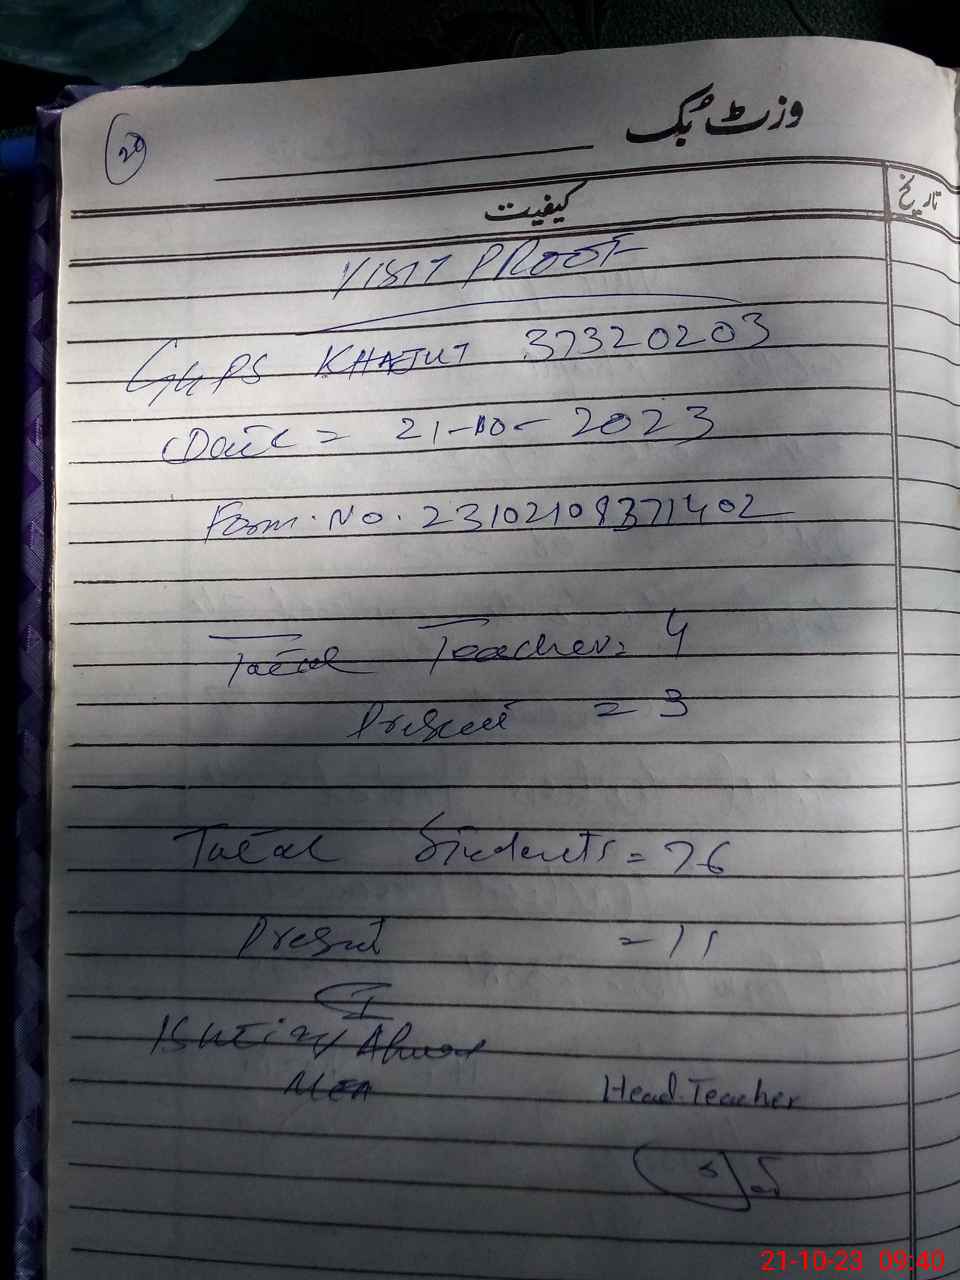 وزٹ بُک
20
کیفیت
تاریخ
VISIT PROOF
GGPS KHAJUT 37320203
Date = 21-10-2023
Form. No. 23102109371402
Total Teacher = 4
Present = 3
Total Students = 76
Present = 11
Ishtiaq Ahmed
MEA
Head Teacher
21-10-23 09:40